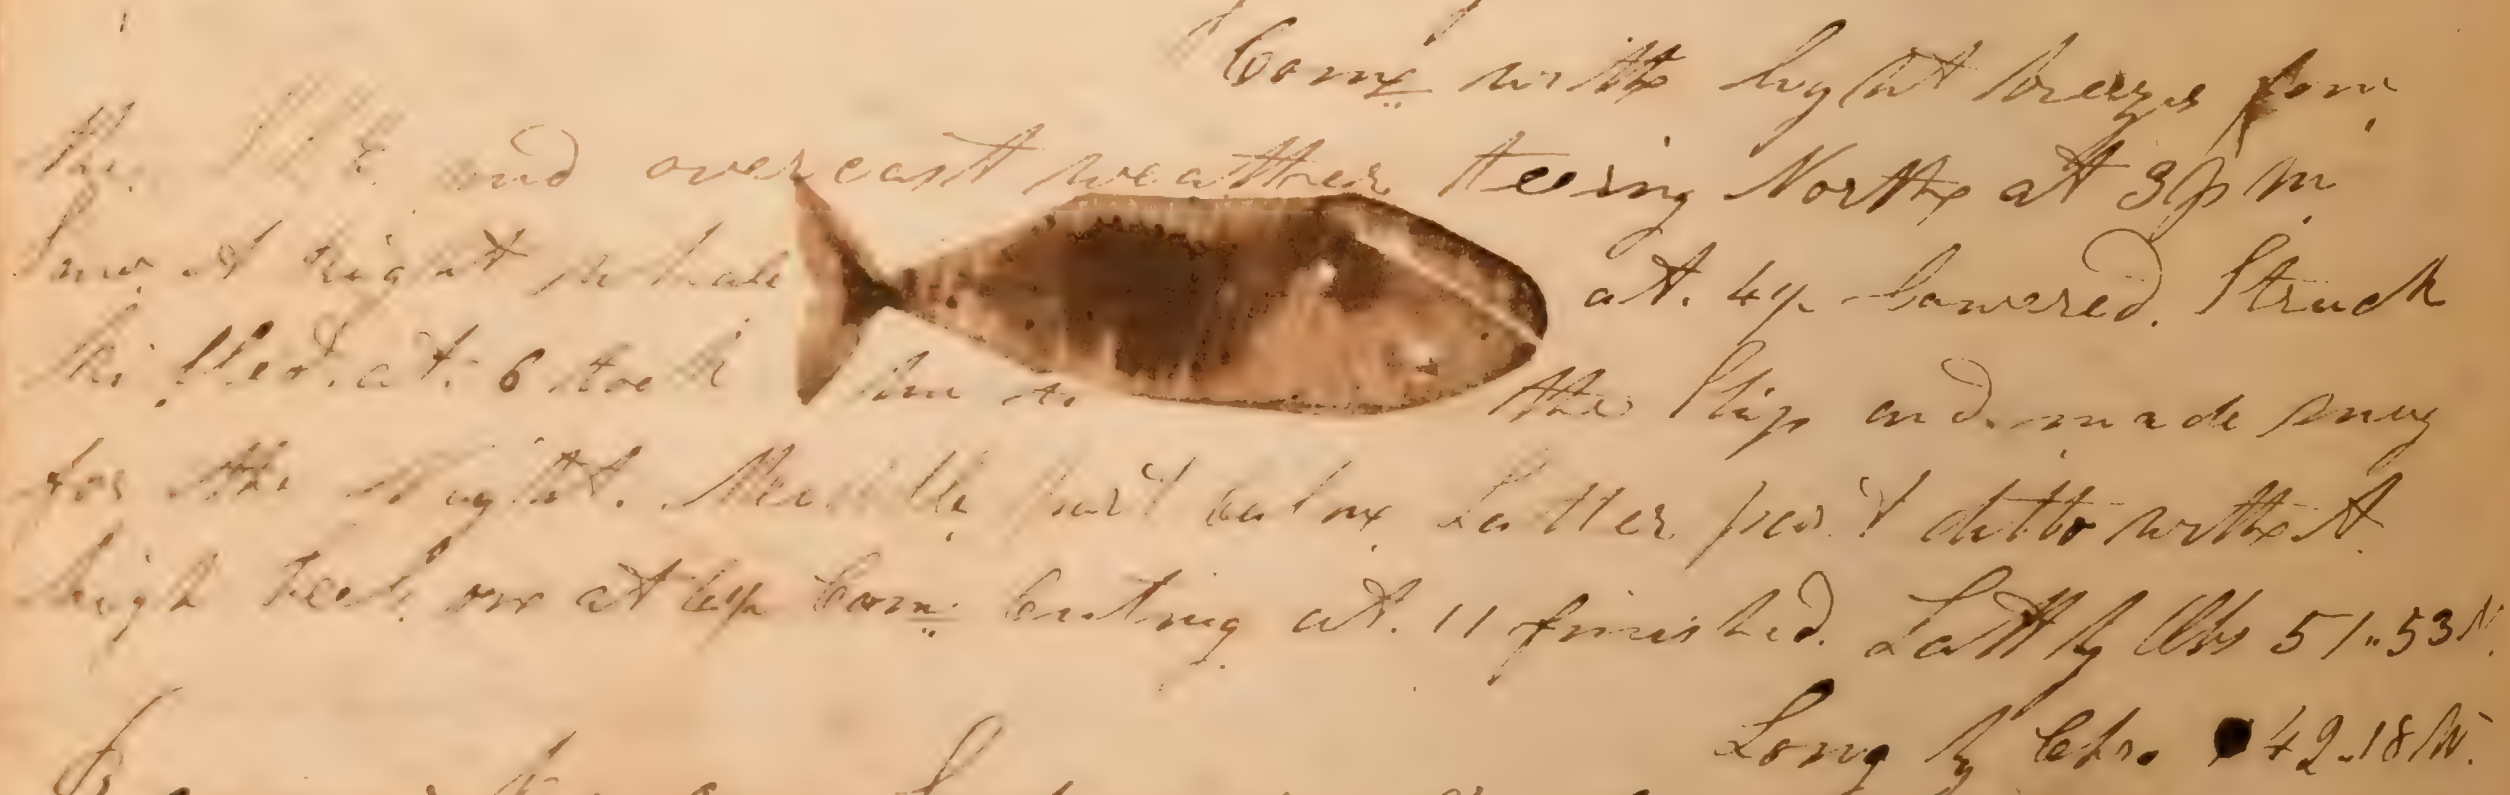 Comg with light breezes from
the and overcast weather Steering North at 3 pm
Saw A Right whale at. 4p lowered. Struck
ki lled. at. 6 took him to the Ship and made snug
for the Night. Middle part calm Latter part ditto with A
high Sea. on at 4p Com Cutting at. 11 finished. Latt by Obs 51..53 N.
Long by Chr. 42.18 W.